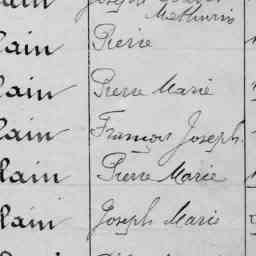 Mathurin
lain Pierre
lain Pierre Marie
lain François Joseph
lain Pierre Marie
lain Joseph Marie